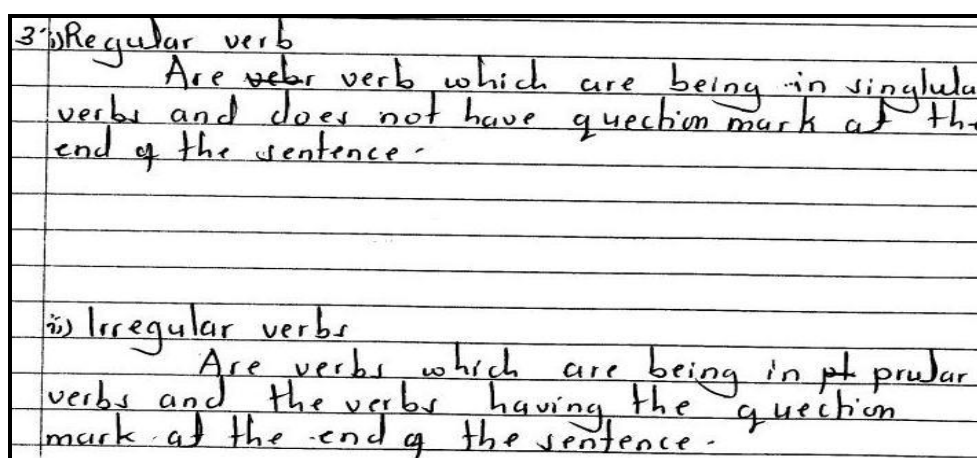 3 i) Regular verb
Are verb which are being in singlula
verbs and does not have quection mark at the
end of the sentence.
ii) Irregular verbs
Are verbs which are being in prular
verbs and the verbs having the quection
mark at the end of the sentence.